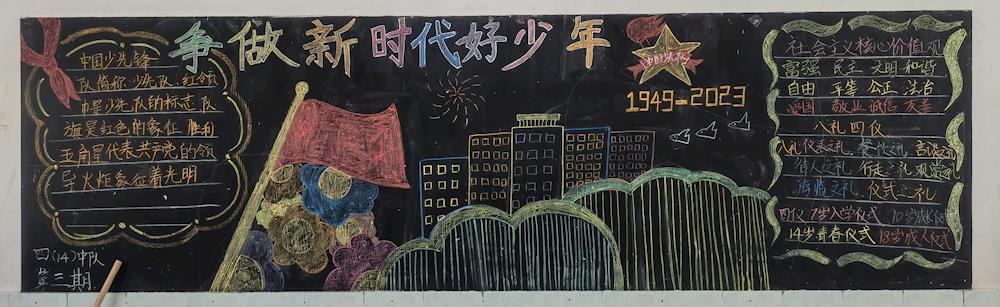 争做新时代好少年
中国少先锋
队简称少先队、红领
巾是少先队的标志队
旗是红色的象征 胜利
五角星代表共产党的领
导火炬象征着光明
四(14)中队
第三期
中国少先队
1949-2023
社会主义核心价值观
富强 民主 文明 和谐
自由 平等 公正 法治
爱国 敬业 诚信 友善
八礼四仪
仪表之礼 餐饮之礼 言谈之礼
待人之礼 行走之礼 观赏之礼
游览之礼 仪式之礼
四仪 7岁入学仪式 10岁成长仪式
14岁青春仪式 18岁成人仪式